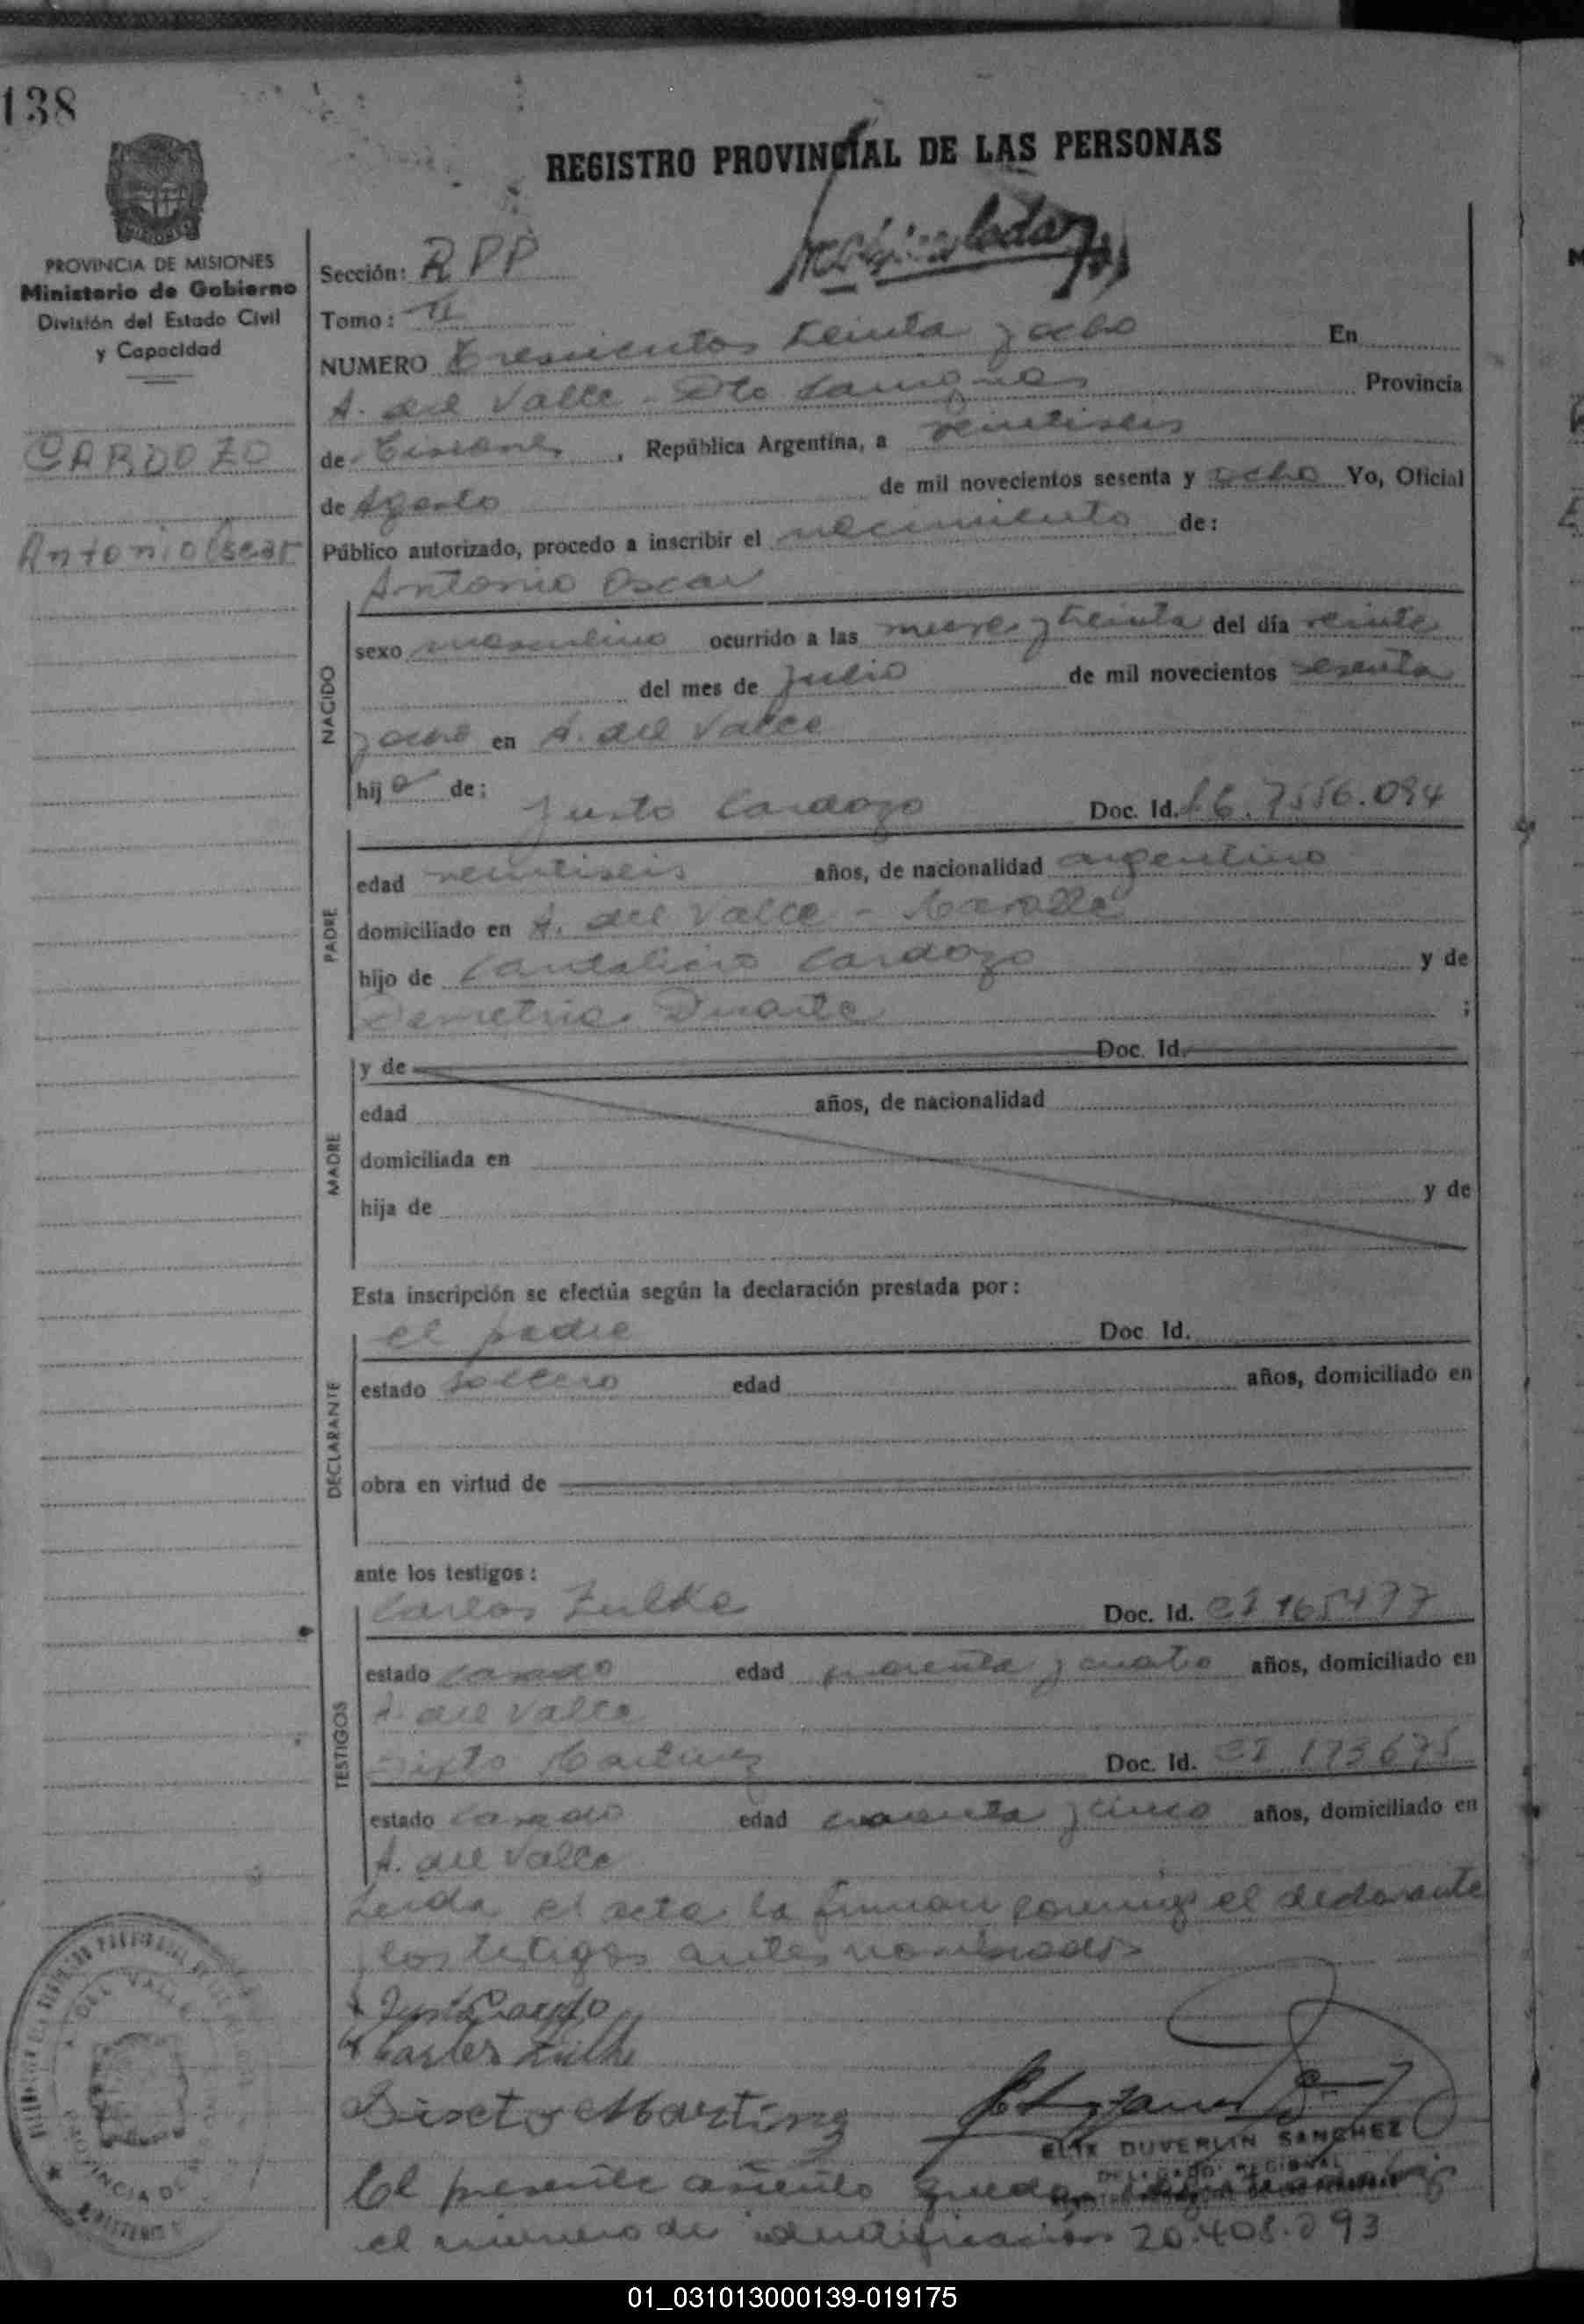 138
REGISTRO PROVINCIAL DE LAS PERSONAS
PROVINCIA DE MISIONES
Ministerio de Gobierno
División del Estado Civil
y Capacidad
CARDOZO
Antonio Oscar
Sección: R P P
Tomo: II
NUMERO Trescientos treinta y ocho En
A. del Valle - Dto Provincia
de Misiones, República Argentina, a veintiseis
de Agosto de mil novecientos sesenta y ocho Yo, Oficial
Público autorizado, procedo a inscribir el nacimiento de:
Antonio Oscar
NACIDO
sexo masculino ocurrido a las nueve y treinta del día veinte
del mes de Julio de mil novecientos sesenta
y ocho en A. del Valle
hijo de:
Justo Cardozo Doc. Id. 7.556.094
PADRE
edad veintiseis años, de nacionalidad argentino
domiciliado en A. del Valle -
hijo de Cantalicio Cardozo y de
Demetria Duarte ;
MADRE
y de Doc. Id.
edad años, de nacionalidad
domiciliada en
hija de y de
Esta inscripción se efectúa según la declaración prestada por:
DECLARANTE
el padre Doc. Id.
estado soltero edad años, domiciliado en
obra en virtud de
ante los testigos:
TESTIGOS
Carlos Zulke Doc. Id. CI 165477
estado casado edad cuarenta y cuatro años, domiciliado en
A. del Valle
Sixto Martinez Doc. Id. CI 173675
estado casado edad cuarenta y cinco años, domiciliado en
A. del Valle
Leida el acta la firman conmigo el declarante
y los testigos antes nombrados
Justo Cardozo
Carlos Zulke
Sixcto Martinez
DUVERLIN SANCHEZ
DELEGADO REGIONAL
El presente asiento queda
el numero de identificación 20.408.093
DEL VALLE
PROVINCIA DE
01_031013000139-019175